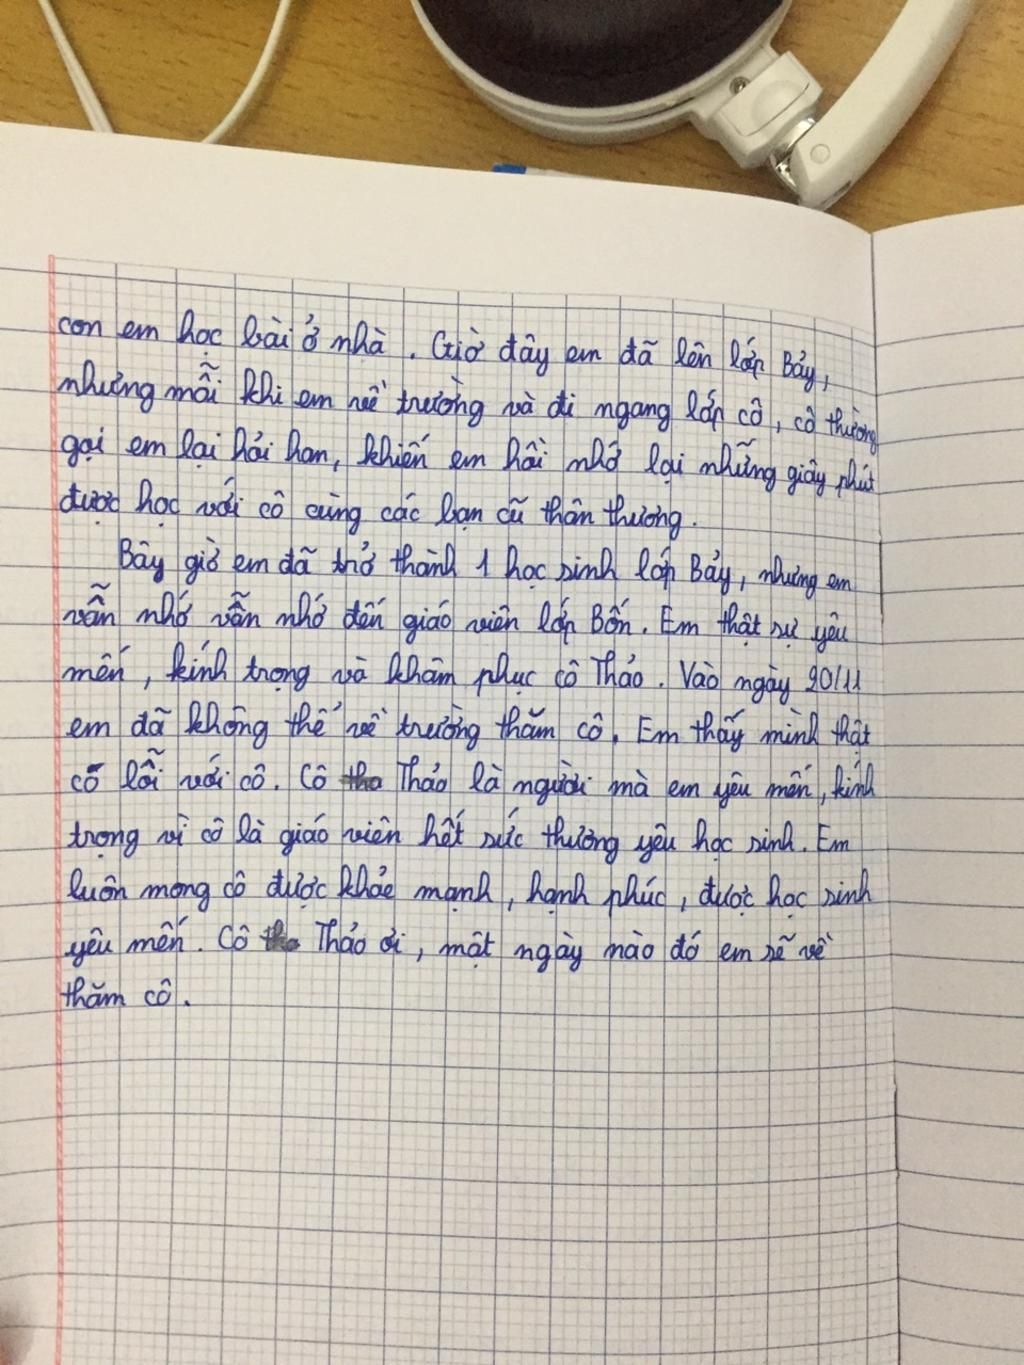 con em học bài ở nhà. Giờ đây em đã lên lớp Bảy,
nhưng mỗi khi em về trường và đi ngang lớp cô, cô thường
gọi em lại hỏi han, khiến em hồi nhớ lại những giây phút
được học với cô cùng các bạn cũ thân thương.
Bây giờ em đã trở thành 1 học sinh lớp Bảy, nhưng em
vẫn nhớ vẫn nhớ đến giáo viên lớp Bốn. Em thật sự yêu
mến, kính trọng và khâm phục cô Thảo. Vào ngày 20/11
em đã không thể về trường thăm cô. Em thấy mình thật
có lỗi với cô. Cô Thảo là người mà em yêu mến, kính
trọng vì cô là giáo viên hết sức thương yêu học sinh. Em
luôn mong cô được khỏe mạnh, hạnh phúc, được học sinh
yêu mến. Cô Thảo ơi, một ngày nào đó em sẽ về
thăm cô.